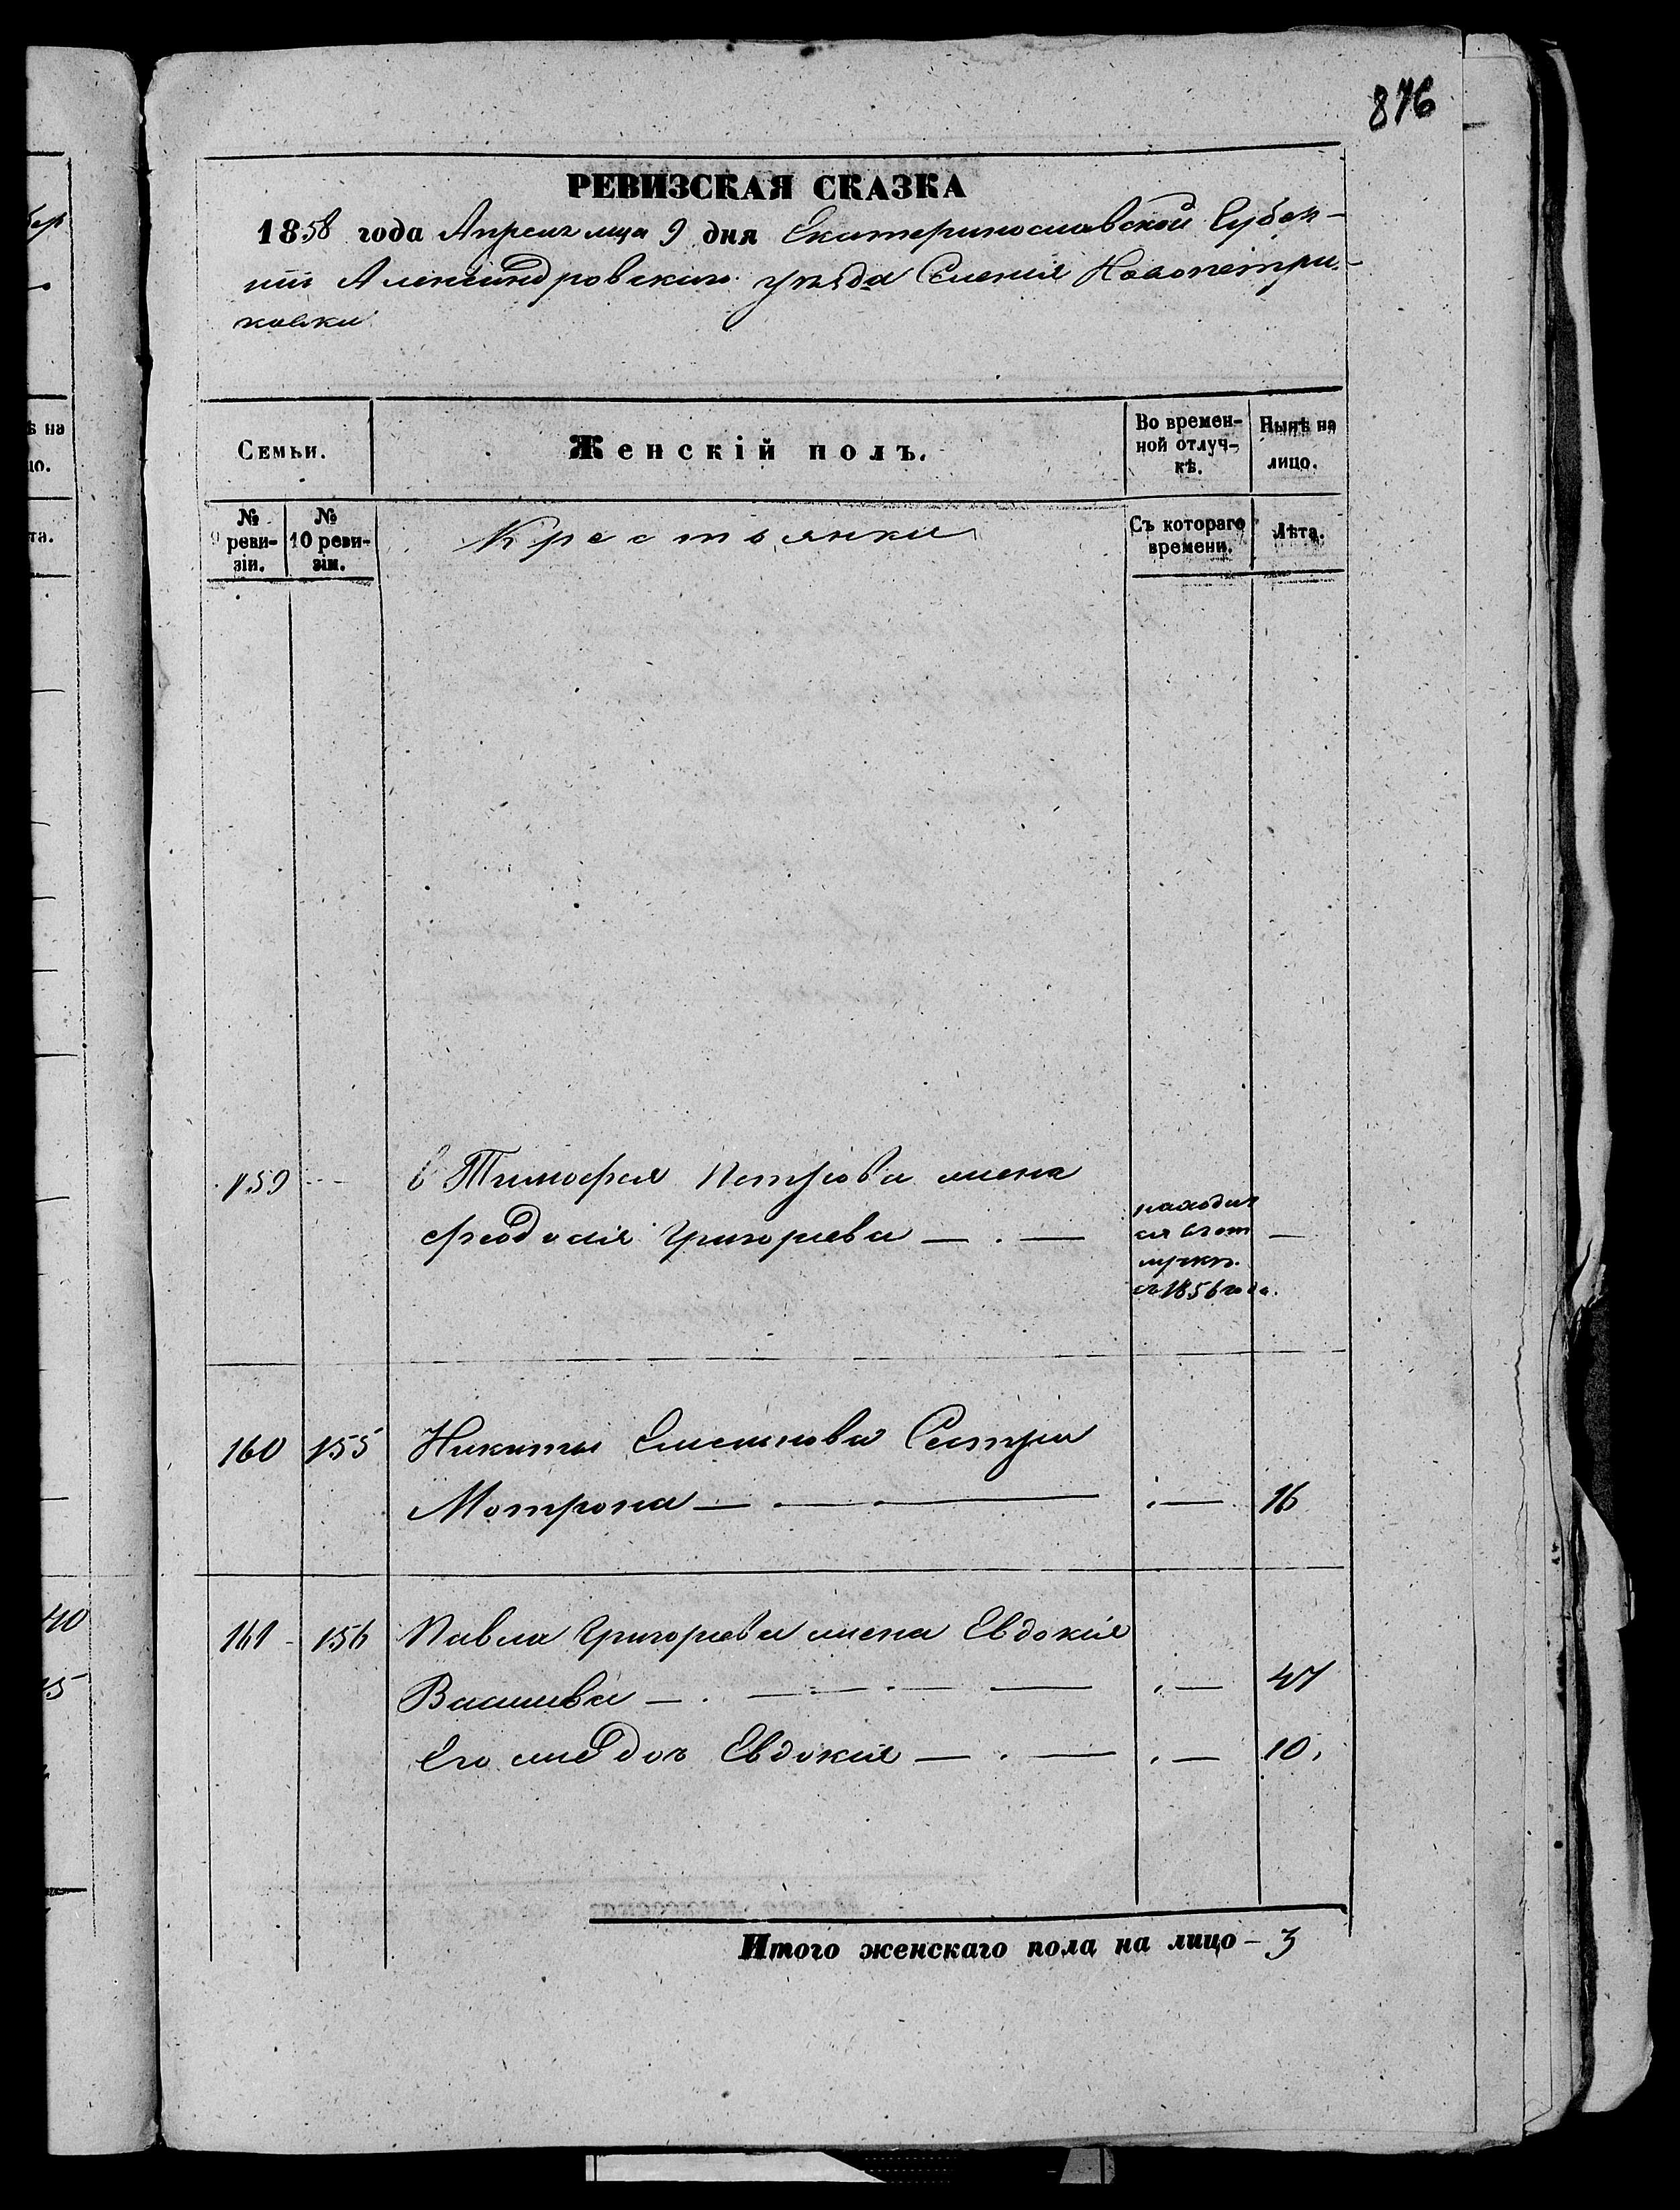 876
РЕВИЗСКАЯ СКАЗКА
1858 года Апреля мца 9 дня Екатеринославской Губер-
нии Александровскаго уезда Селения Новопетри-
ковки
Семьи.
Женскій полъ.
Во времен-
ной отлуч-
кѣ.
Нынѣ на
лицо.
№
9 реви-
зіи.
№
10 реви-
зіи.
Крестьянки
Съ котораго
времени.
Лѣта.
159 - - Тимофея Петрова жена
Феодосія Григорьева — . —
находит
ся в от
лучкѣ
съ 1856 года.
—
160 155 Никиты Семенова Сестра
Мотрона — . — . — . — 16
161 - 156 Павла Григорьева жена Евдокія
— . — . — . — 47
Его дочь Евдокія — . — . — 10.
Итого женскаго пола на лицо - 3
ѣ на
цо.
та.
40
15